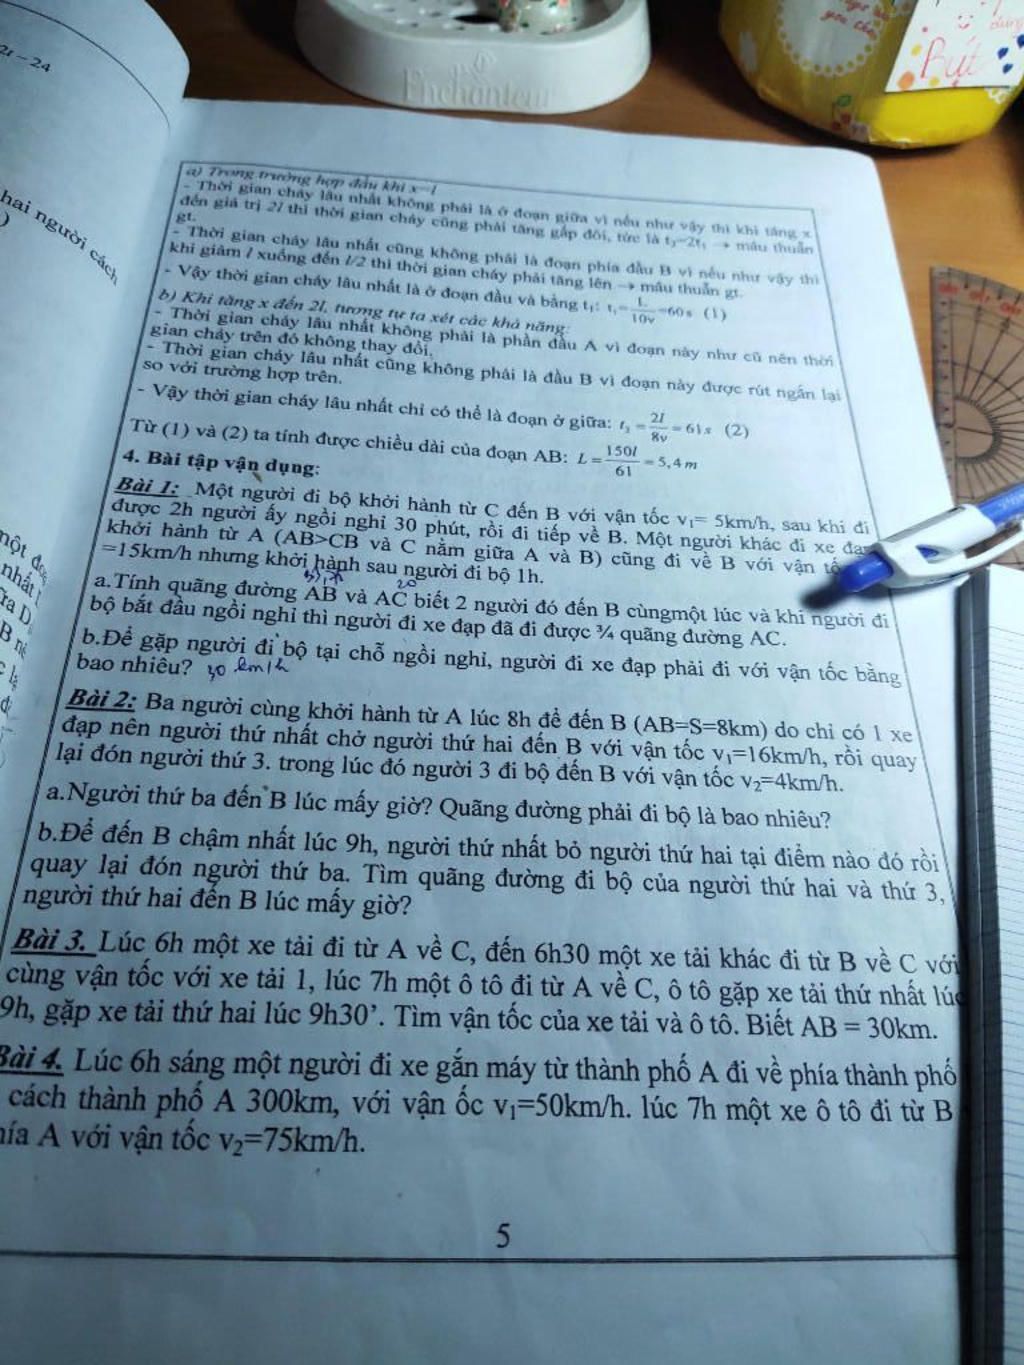 2t – 24
hai người cách
Enchanteur
Bút
a) Trong trường hợp đầu khi x=l
- Thời gian cháy lâu nhất không phải là ở đoạn giữa vì nếu như vậy thì khi tăng x
đến giá trị 2l thì thời gian cháy cũng phải tăng gấp đôi, tức là t₂=2t₁ → mâu thuẫn
gt.
- Thời gian cháy lâu nhất cũng không phải là đoạn phía đầu B vì nếu như vậy thì
khi giảm l xuống đến l/2 thì thời gian cháy phải tăng lên → mâu thuẫn gt.
- Vậy thời gian cháy lâu nhất là ở đoạn đầu và bằng t₁: t₁ = L/10v = 60s (1)
b) Khi tăng x đến 2l, tương tự ta xét các khả năng:
- Thời gian cháy lâu nhất không phải là phần đầu A vì đoạn này như cũ nên thời
gian cháy trên đó không thay đổi.
- Thời gian cháy lâu nhất cũng không phải là đầu B vì đoạn này được rút ngắn lại
so với trường hợp trên.
- Vậy thời gian cháy lâu nhất chỉ có thể là đoạn ở giữa: t₃ = 2l/8v = 61s (2)
Từ (1) và (2) ta tính được chiều dài của đoạn AB: L = 150l/61 = 5,4m
4. Bài tập vận dụng:
Bài 1: Một người đi bộ khởi hành từ C đến B với vận tốc v₁= 5km/h, sau khi đi
được 2h người ấy ngồi nghỉ 30 phút, rồi đi tiếp về B. Một người khác đi xe đạ
khởi hành từ A (AB>CB và C nằm giữa A và B) cũng đi về B với vận tố
=15km/h nhưng khởi hành sau người đi bộ 1h.
20
a.Tính quãng đường AB và AC biết 2 người đó đến B cùngmột lúc và khi người đi
bộ bắt đầu ngồi nghỉ thì người đi xe đạp đã đi được ¾ quãng đường AC.
b.Để gặp người đi bộ tại chỗ ngồi nghỉ, người đi xe đạp phải đi với vận tốc bằng
bao nhiêu? 30 km/h
Bài 2: Ba người cùng khởi hành từ A lúc 8h để đến B (AB=S=8km) do chỉ có 1 xe
đạp nên người thứ nhất chở người thứ hai đến B với vận tốc v₁=16km/h, rồi quay
lại đón người thứ 3. trong lúc đó người 3 đi bộ đến B với vận tốc v₂=4km/h.
a.Người thứ ba đến B lúc mấy giờ? Quãng đường phải đi bộ là bao nhiêu?
b.Để đến B chậm nhất lúc 9h, người thứ nhất bỏ người thứ hai tại điểm nào đó rồi
quay lại đón người thứ ba. Tìm quãng đường đi bộ của người thứ hai và thứ 3,
người thứ hai đến B lúc mấy giờ?
Bài 3. Lúc 6h một xe tải đi từ A về C, đến 6h30 một xe tải khác đi từ B về C với
cùng vận tốc với xe tải 1, lúc 7h một ô tô đi từ A về C, ô tô gặp xe tải thứ nhất lúc
9h, gặp xe tải thứ hai lúc 9h30’. Tìm vận tốc của xe tải và ô tô. Biết AB = 30km.
Bài 4. Lúc 6h sáng một người đi xe gắn máy từ thành phố A đi về phía thành phố
cách thành phố A 300km, với vận ốc v₁=50km/h. lúc 7h một xe ô tô đi từ B
hía A với vận tốc v₂=75km/h.
5